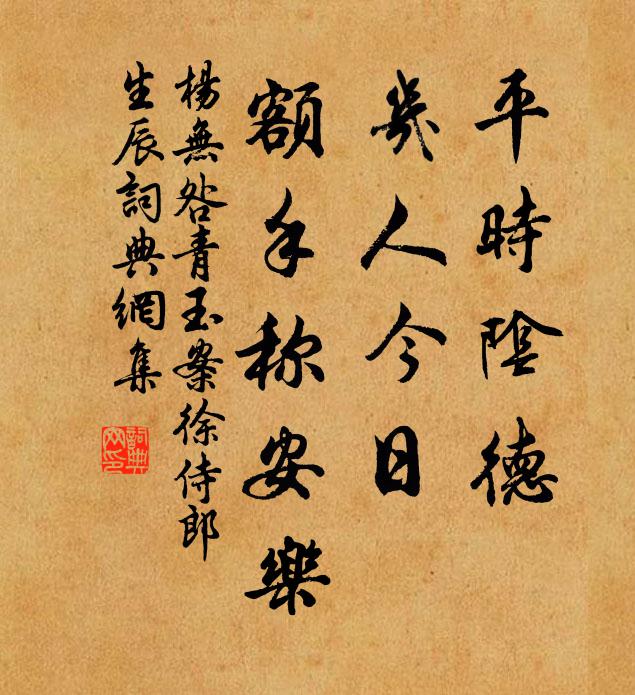 平時陰德
幾人今日
額手称安樂
楊無咎青玉案徐侍郎
生辰詞典網集
詞典網印